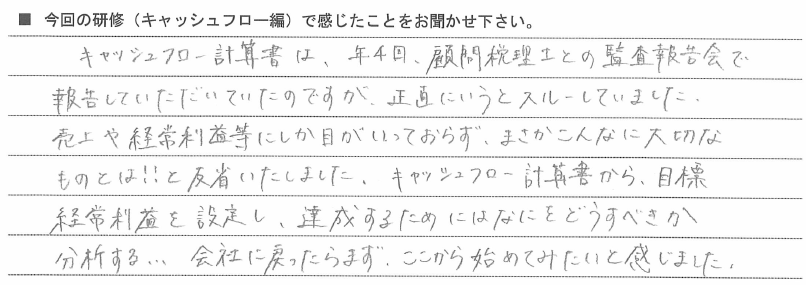 ■ 今回の研修（キャッシュフロー編）で感じたことをお聞かせ下さい。
キャッシュフロー計算書は、年4回、顧問税理士との監査報告会で
報告していただいていたのですが、正直にいうとスルーしていました。
売上や経常利益等にしか目がいっておらず、まさかこんなに大切な
ものとは!!と反省いたしました。キャッシュフロー計算書から、目標
経常利益を設定し、達成するためにはなにをどうすべきか
分析する… 会社に戻ったらまず、ここから始めてみたいと感じました。